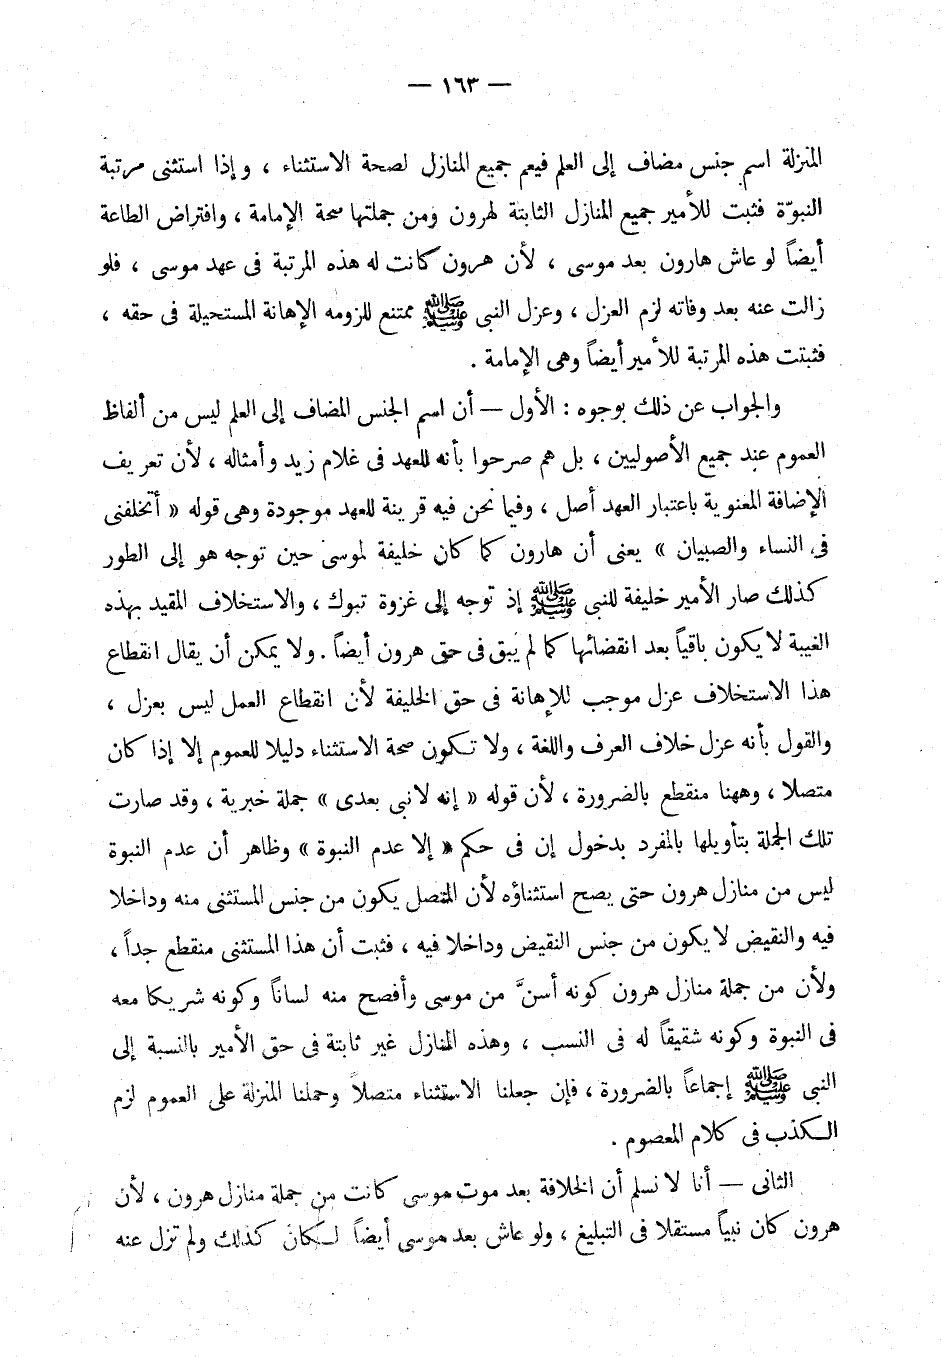 — ١٦٣ —
المنزلة اسم جنس مضاف إلى العلم فيعم جميع المنازل لصحة الاستثناء ، وإذا استثنى مرتبة
النبوّة فثبت للأمير جميع المنازل الثابتة لهرون ومن جملتها صحة الإمامة ، وافتراض الطاعة
أيضاً لو عاش هارون بعد موسى ، لأن هرون كانت له هذه المرتبة فى عهد موسى ، فلو
زالت عنه بعد وفاته لزم العزل ، وعزل النبى ﷺ ممتنع للزومه الإهانة المستحيلة فى حقه ،
فثبتت هذه المرتبة للأمير أيضاً وهى الإمامة .
والجواب عن ذلك بوجوه : الأول — أن اسم الجنس المضاف إلى العلم ليس من ألفاظ
العموم عند جميع الأصوليين ، بل هم صرحوا بأنه للعهد فى غلام زيد وأمثاله ، لأن تعريف
الإضافة المعنوية باعتبار العهد أصل ، وفيما نحن فيه قرينة للعهد موجودة وهى قوله « أتخلفنى
فى النساء والصبيان » يعنى أن هارون كما كان خليفة لموسى حين توجه هو إلى الطور
كذلك صار الأمير خليفة للنبى ﷺ إذ توجه إلى غزوة تبوك ، والاستخلاف المقيد بهذه
الغيبة لا يكون باقياً بعد انقضائها كما لم يبق فى حق هرون أيضاً . ولا يمكن أن يقال انقطاع
هذا الاستخلاف عزل موجب للإهانة فى حق الخليفة لأن انقطاع العمل ليس بعزل ،
والقول بأنه عزل خلاف العرف واللغة ، ولا تكون صحة الاستثناء دليلا للعموم إلا إذا كان
متصلا ، وههنا منقطع بالضرورة ، لأن قوله « إنه لا نبى بعدى » جملة خبرية ، وقد صارت
تلك الجملة بتأويلها بالمفرد بدخول إن فى حكم « إلا عدم النبوة » وظاهر أن عدم النبوة
ليس من منازل هرون حتى يصح استثناؤه لأن المتصل يكون من جنس المستثنى منه وداخلا
فيه والنقيض لا يكون من جنس النقيض وداخلا فيه ، فثبت أن هذا المستثنى منقطع جداً ،
ولأن من جملة منازل هرون كونه أسنَّ من موسى وأفصح منه لساناً وكونه شريكا معه
فى النبوة وكونه شقيقاً له فى النسب ، وهذه المنازل غير ثابتة فى حق الأمير بالنسبة إلى
النبى ﷺ إجماعاً بالضرورة ، فإن جعلنا الاستثناء متصلاً وحملنا المنزلة على العموم لزم
الكذب فى كلام المعصوم .
الثانى — أنا لا نسلم أن الخلافة بعد موت موسى كانت من جملة منازل هرون ، لأن
هرون كان نبياً مستقلا فى التبليغ ، ولو عاش بعد موسى أيضاً لكان كذلك ولم تزل عنه